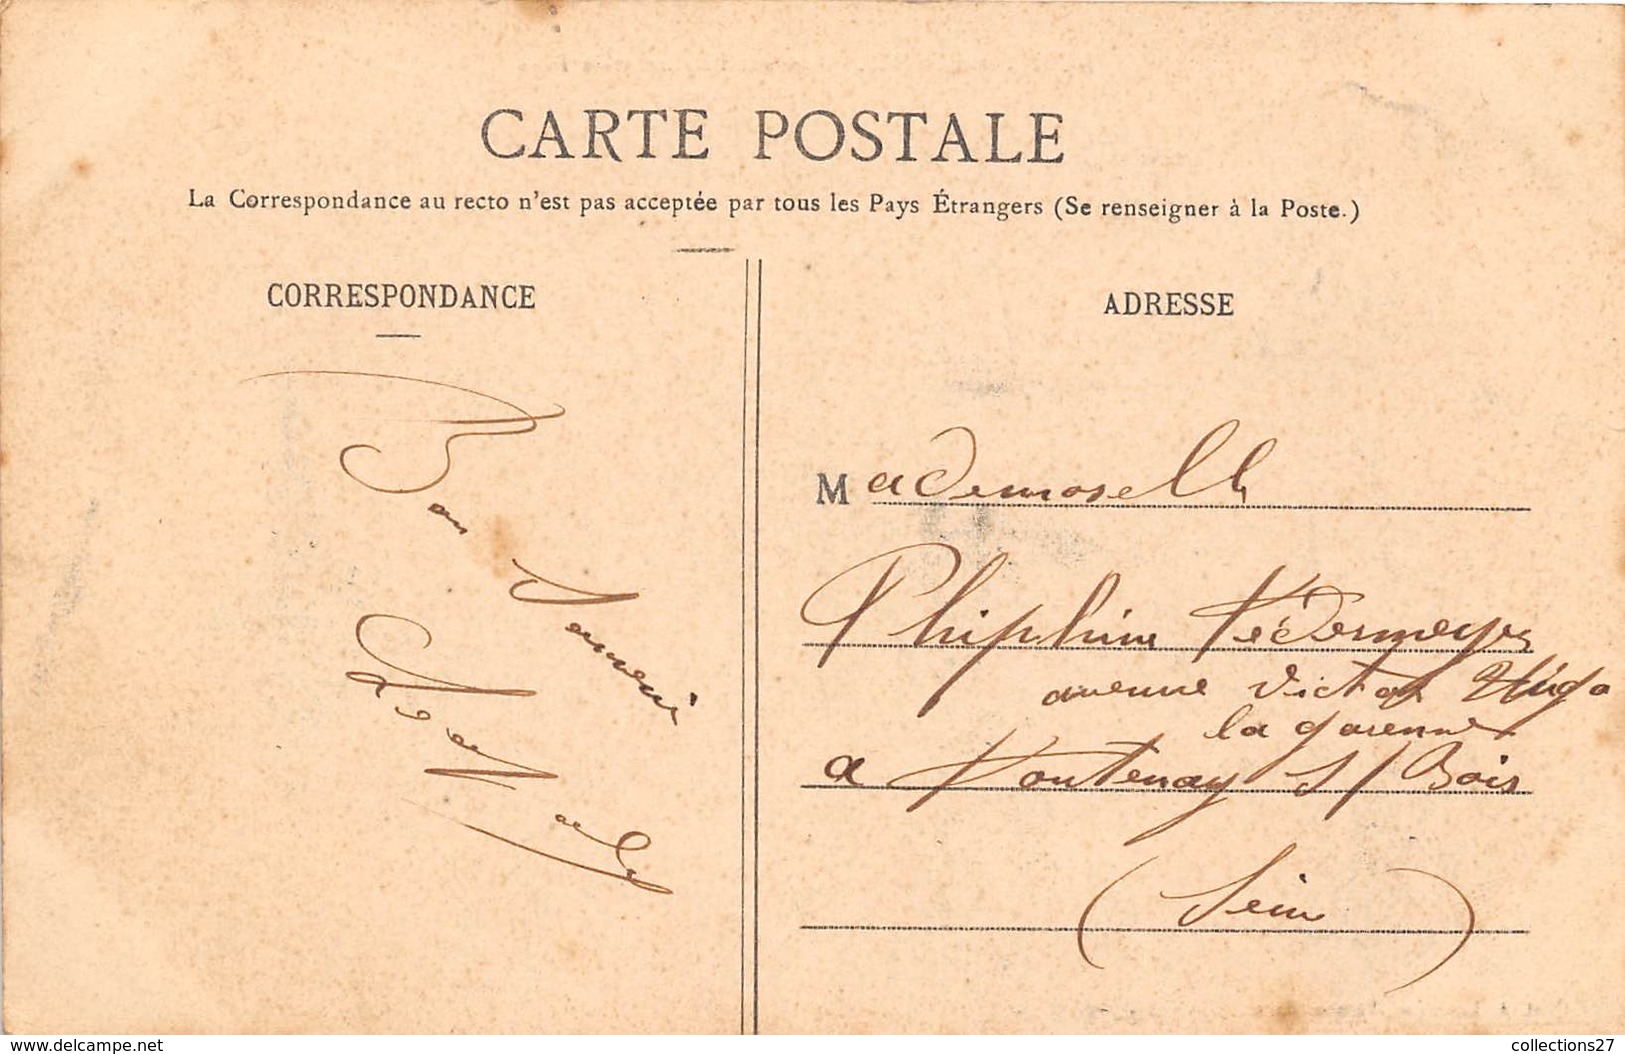 CARTE POSTALE
La Correspondance au recto n'est pas acceptée par tous les Pays Étrangers (Se renseigner à la Poste.)
CORRESPONDANCE
Bon Souvenir
ADRESSE
Mademoiselle
Phiphine
avenue Victor Hugo
la garenne
a Fontenay s/ Bois
(Seine)
www.delcampe.net
collections27